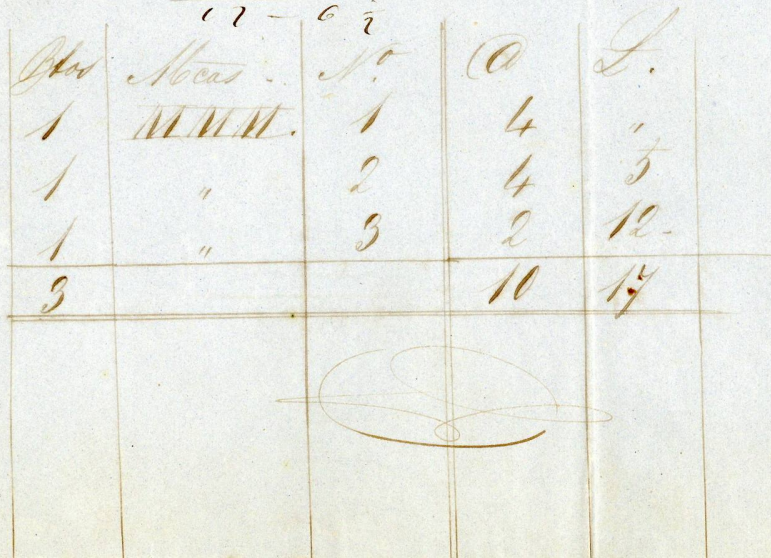 Btos Mcas. Nº @ L.
1 MMM. 1 4 "
1 " 2 4 5
1 " 3 2 12-
3 10 17